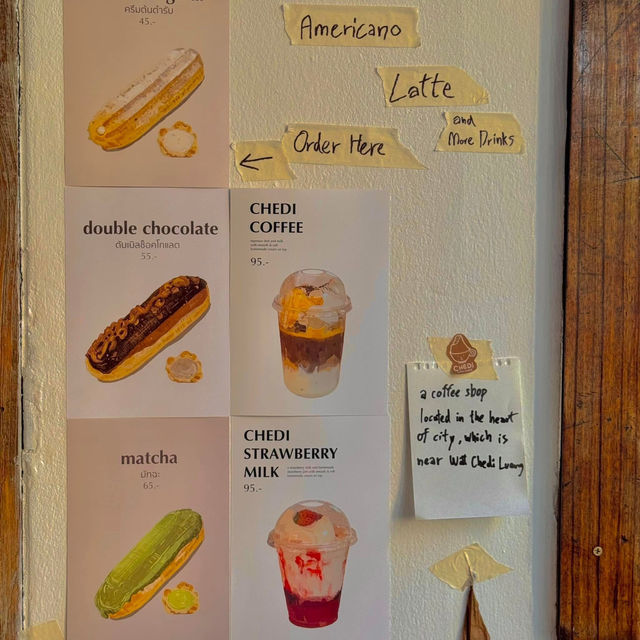 ครีมต้นตำรับ
45.-
double chocolate
ดับเบิลช็อคโกแลต
55.-
matcha
มัทฉะ
65.-
CHEDI
COFFEE
95.-
CHEDI
STRAWBERRY
MILK
95.-
Americano
Latte
and
More Drinks
← Order Here
CHEDI
a coffee shop
located in the heart
of city, which is
near Wat Chedi Luang